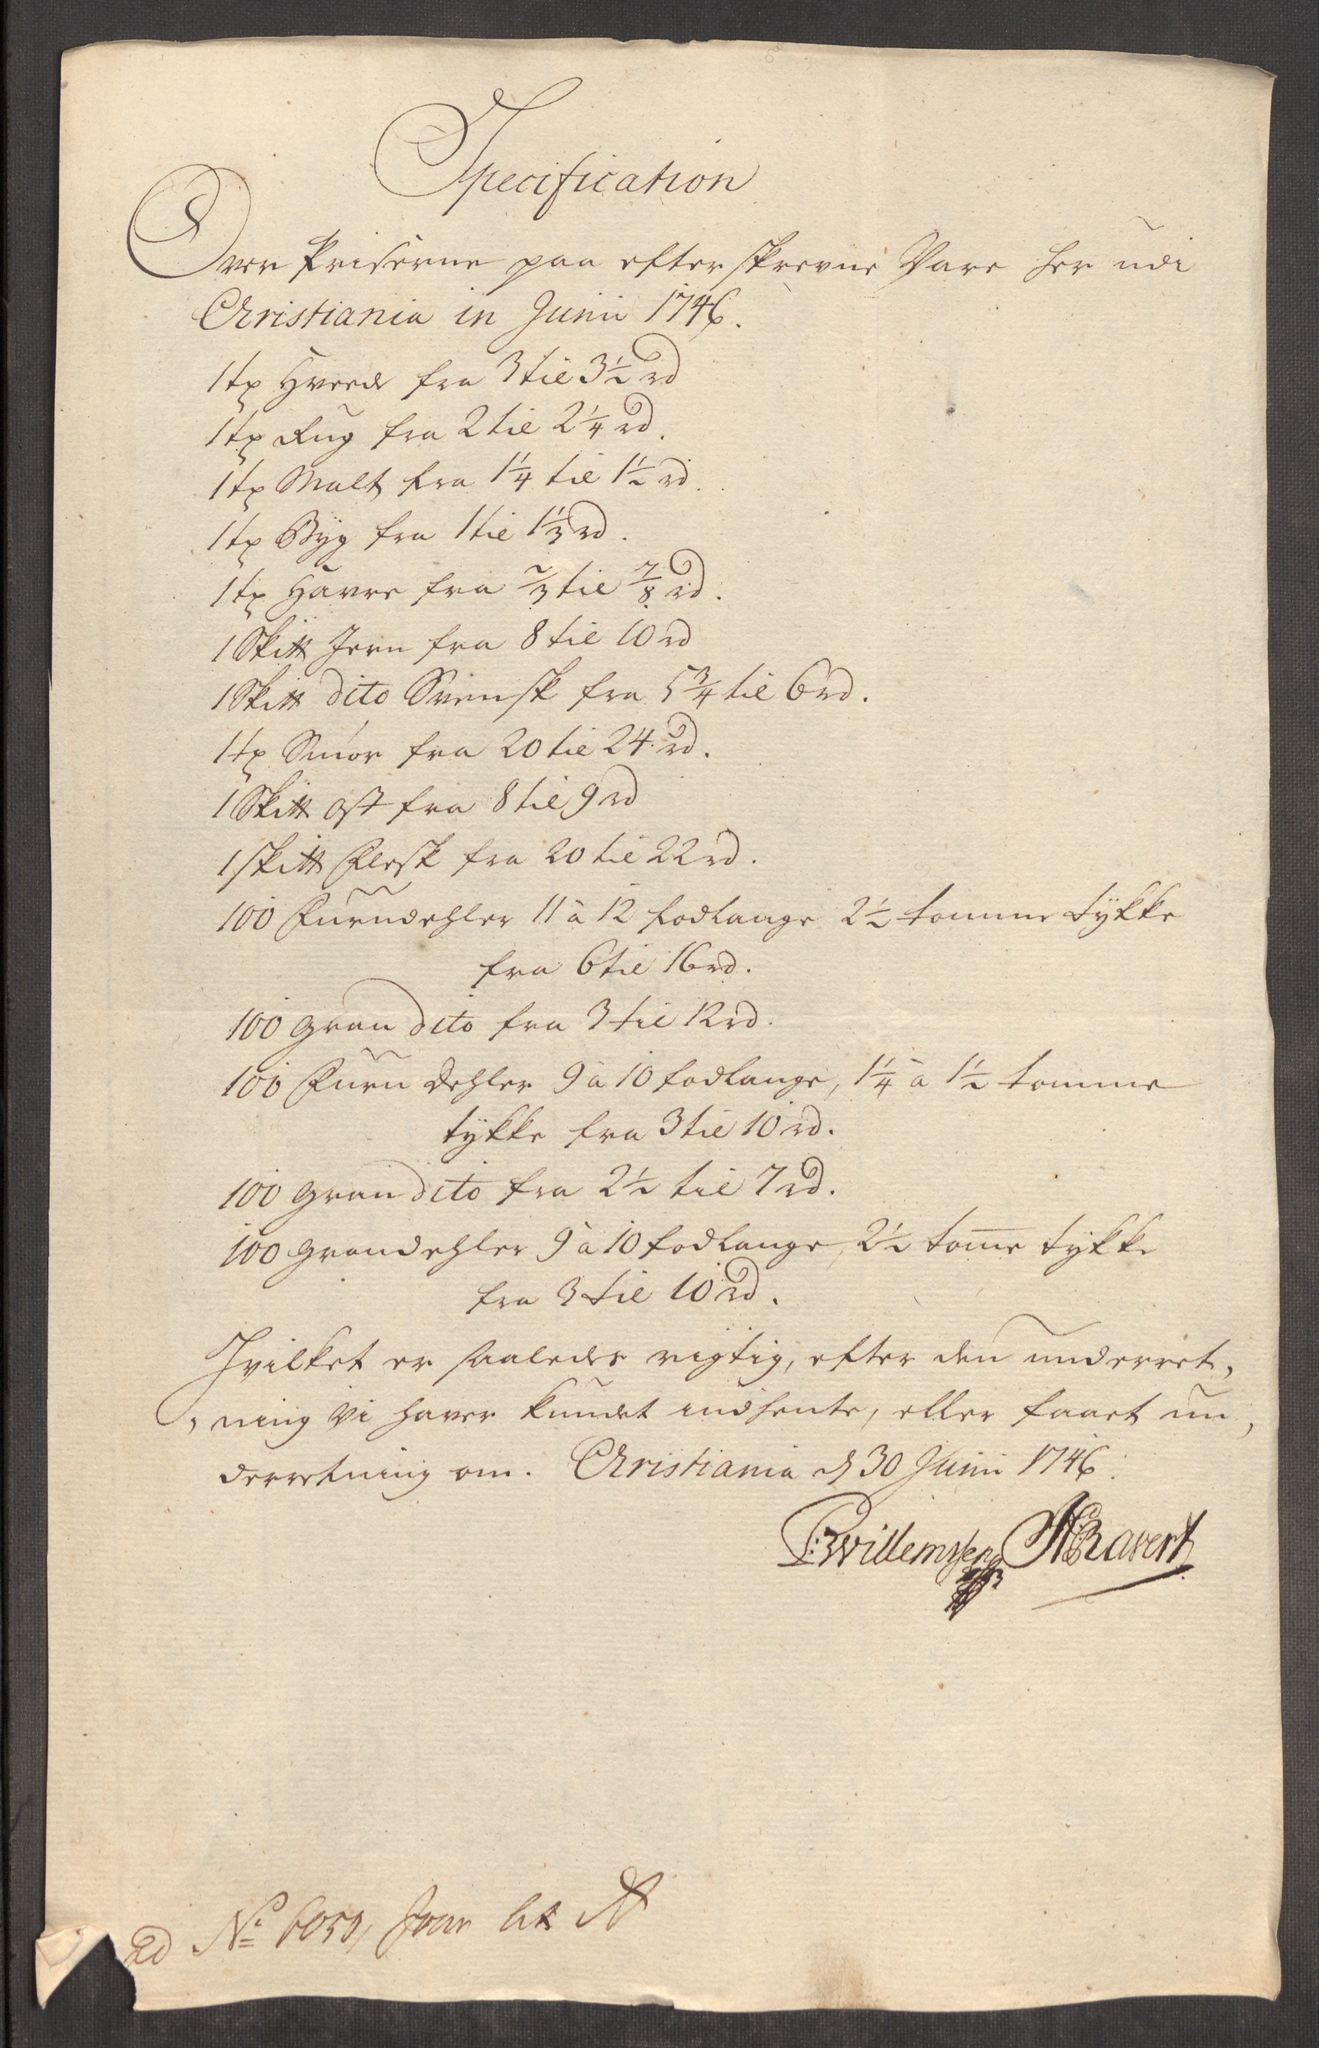 Specification
Over Priserne paa efterskrevne Vare her udi
Christiania in Junii 1746.
1 tr Hvede fra 3 til 3½ rd
1 tr Rug fra 2 til 2¼ rd.
1 tr Malt fra 1¼ til 1½ rd.
1 tr Byg fra 1 til 1⅓ rd.
1 tr Havre fra ⅔ til ⅞ rd.
1 Sk℔ Jern fra 8 til 10 rd
1 Sk℔ dito Svensk fra 5¾ til 6 rd.
1 tr Smør fra 20 til 24 rd.
1 Sk℔ Ost fra 8 til 9 rd
1 Sk℔ Flesk fra 20 til 22 rd.
100 Furudehler 11 à 12 fodlange 2½ tomme tykke
fra 6 til 16 rd.
100 gran dito fra 3 til 12 rd.
100 Furu dehler 9 à 10 fodlange, 1¼ à 1½ tomme
tykke fra 3 til 10 rd.
100 gran dito fra 2½ til 7 rd.
100 grandehler 9 à 10 fodlange, 2½ tome tykke
fra 3 til 10 rd.
Hvilket er saaledes rigtig, efter den underret,
,ning Vi haver kundet indhente, eller faaet un,
derretning om. Christiania d 30 Junii 1746.
Willemssen Ravert
ad No 6050, Jour